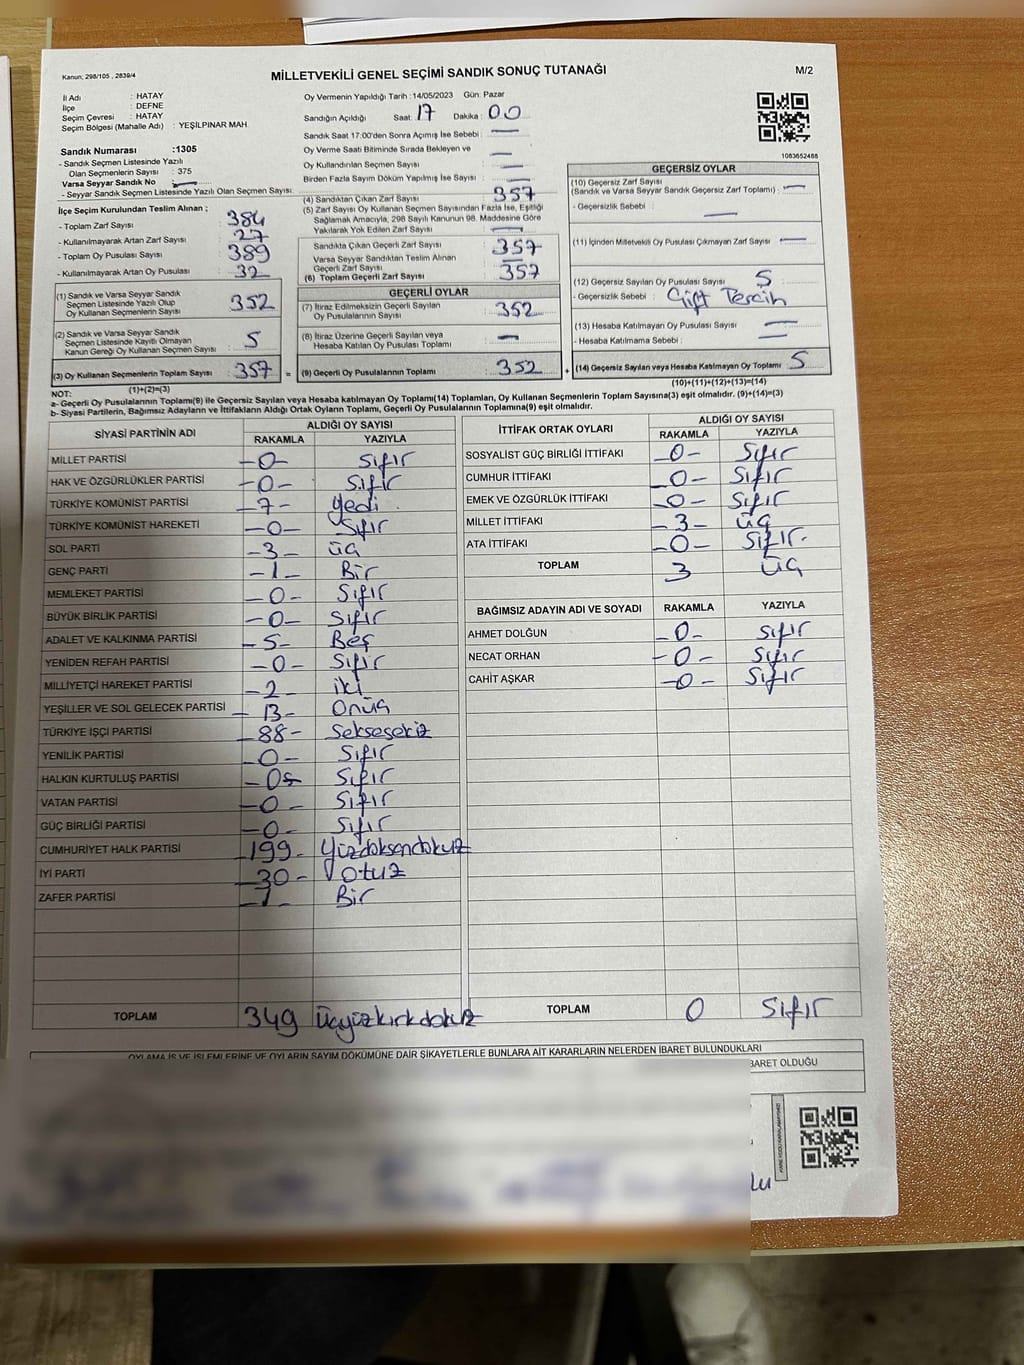 Kanun; 298/105 , 2839/4
MİLLETVEKİLİ GENEL SEÇİMİ SANDIK SONUÇ TUTANAĞI
M/2
İl Adı : HATAY
İlçe : DEFNE
Seçim Çevresi : HATAY
Seçim Bölgesi (Mahalle Adı) : YEŞİLPINAR MAH.
Oy Vermenin Yapıldığı Tarih :14/05/2023 Gün: Pazar
Sandığın Açıldığı Saat: 17 Dakika: 00
Sandık Saat 17:00'den Sonra Açımış İse Sebebi : —
Oy Verme Saati Bitiminde Sırada Bekleyen ve
Oy Kullandırılan Seçmen Sayısı : —
Birden Fazla Sayım Döküm Yapılmış İse Sayısı : —
1083652488
Sandık Numarası :1305
- Sandık Seçmen Listesinde Yazılı
Olan Seçmenlerin Sayısı : 375
Varsa Seyyar Sandık No : —
- Seyyar Sandık Seçmen Listesinde Yazılı Olan Seçmen Sayısı:
İlçe Seçim Kurulundan Teslim Alınan ;
- Toplam Zarf Sayısı : 384
- Kullanılmayarak Artan Zarf Sayısı : 27
- Toplam Oy Pusulası Sayısı : 389
- Kullanılmayarak Artan Oy Pusulası : 32
(1) Sandık ve Varsa Seyyar Sandık
Seçmen Listesinde Yazılı Olup
Oy Kullanan Seçmenlerin Sayısı : 352
(2) Sandık ve Varsa Seyyar Sandık
Seçmen Listesinde Kayıtlı Olmayan
Kanun Gereği Oy Kullanan Seçmen Sayısı : 5
(3) Oy Kullanan Seçmenlerin Toplam Sayısı : 357 =
(1)+(2)=(3)
(4) Sandıktan Çıkan Zarf Sayısı : 357
(5) Zarf Sayısı Oy Kullanan Seçmen Sayısından Fazla İse, Eşitliği
Sağlamak Amacıyla, 298 Sayılı Kanunun 98. Maddesine Göre
Yakılarak Yok Edilen Zarf Sayısı : —
Sandıkta Çıkan Geçerli Zarf Sayısı : 357
Varsa Seyyar Sandıktan Teslim Alınan
Geçerli Zarf Sayısı : —
(6) Toplam Geçerli Zarf Sayısı : 357
GEÇERLİ OYLAR
(7) İtiraz Edilmeksizin Geçerli Sayılan
Oy Pusulalarının Sayısı : 352
(8) İtiraz Üzerine Geçerli Sayılan veya
Hesaba Katılan Oy Pusulası Toplamı : —
(9) Geçerli Oy Pusulalarının Toplamı : 352 +
GEÇERSİZ OYLAR
(10) Geçersiz Zarf Sayısı
(Sandık ve Varsa Seyyar Sandık Geçersiz Zarf Toplamı) : —
- Geçersizlik Sebebi : —
(11) İçinden Milletvekili Oy Pusulası Çıkmayan Zarf Sayısı : —
(12) Geçersiz Sayılan Oy Pusulası Sayısı : 5
- Geçersizlik Sebebi : Çift Tercih
(13) Hesaba Katılmayan Oy Pusulası Sayısı : —
- Hesaba Katılmama Sebebi : —
(14) Geçersiz Sayılan veya Hesaba Katılmayan Oy Toplamı : 5
(10)+(11)+(12)+(13)=(14)
NOT:
a- Geçerli Oy Pusulalarının Toplamı(9) ile Geçersiz Sayılan veya Hesaba katılmayan Oy Toplamı(14) Toplamları, Oy Kullanan Seçmenlerin Toplam Sayısına(3) eşit olmalıdır. (9)+(14)=(3)
b- Siyasi Partilerin, Bağımsız Adayların ve İttifakların Aldığı Ortak Oyların Toplamı, Geçerli Oy Pusulalarının Toplamına(9) eşit olmalıdır.
SİYASİ PARTİNİN ADI ALDIĞI OY SAYISI
RAKAMLA YAZIYLA
MİLLET PARTİSİ -0- Sıfır
HAK VE ÖZGÜRLÜKLER PARTİSİ -0- Sıfır
TÜRKİYE KOMÜNİST PARTİSİ -7- Yedi
TÜRKİYE KOMÜNİST HAREKETİ -0- Sıfır
SOL PARTİ -3- üç
GENÇ PARTİ -1- Bir
MEMLEKET PARTİSİ -0- Sıfır
BÜYÜK BİRLİK PARTİSİ -0- Sıfır
ADALET VE KALKINMA PARTİSİ -5- Beş
YENİDEN REFAH PARTİSİ -0- Sıfır
MİLLİYETÇİ HAREKET PARTİSİ -2- iki
YEŞİLLER VE SOL GELECEK PARTİSİ -13- Onüç
TÜRKİYE İŞÇİ PARTİSİ -88- Seksesekiz
YENİLİK PARTİSİ -0- Sıfır
HALKIN KURTULUŞ PARTİSİ -0- Sıfır
VATAN PARTİSİ -0- Sıfır
GÜÇ BİRLİĞİ PARTİSİ -0- Sıfır
CUMHURİYET HALK PARTİSİ -199- Yüzdoksandokuz
İYİ PARTİ -30- otuz
ZAFER PARTİSİ -1- Bir
TOPLAM 349 üçyüzkırkdokuz
İTTİFAK ORTAK OYLARI ALDIĞI OY SAYISI
RAKAMLA YAZIYLA
SOSYALİST GÜÇ BİRLİĞİ İTTİFAKI -0- Sıfır
CUMHUR İTTİFAKI -0- Sıfır
EMEK VE ÖZGÜRLÜK İTTİFAKI -0- Sıfır
MİLLET İTTİFAKI -3- üç
ATA İTTİFAKI -0- Sıfır.
TOPLAM 3 üç
BAĞIMSIZ ADAYIN ADI VE SOYADI RAKAMLA YAZIYLA
AHMET DOLĞUN -0- Sıfır
NECAT ORHAN -0- Sıfır
CAHİT AŞKAR -0- Sıfır
TOPLAM 0 Sıfır
OYLAMA İŞ VE İŞLEMLERİNE VE OYLARIN SAYIM DÖKÜMÜNE DAİR ŞİKAYETLERLE BUNLARA AİT KARARLARIN NELERDEN İBARET BULUNDUKLARI
BARET OLDUĞU